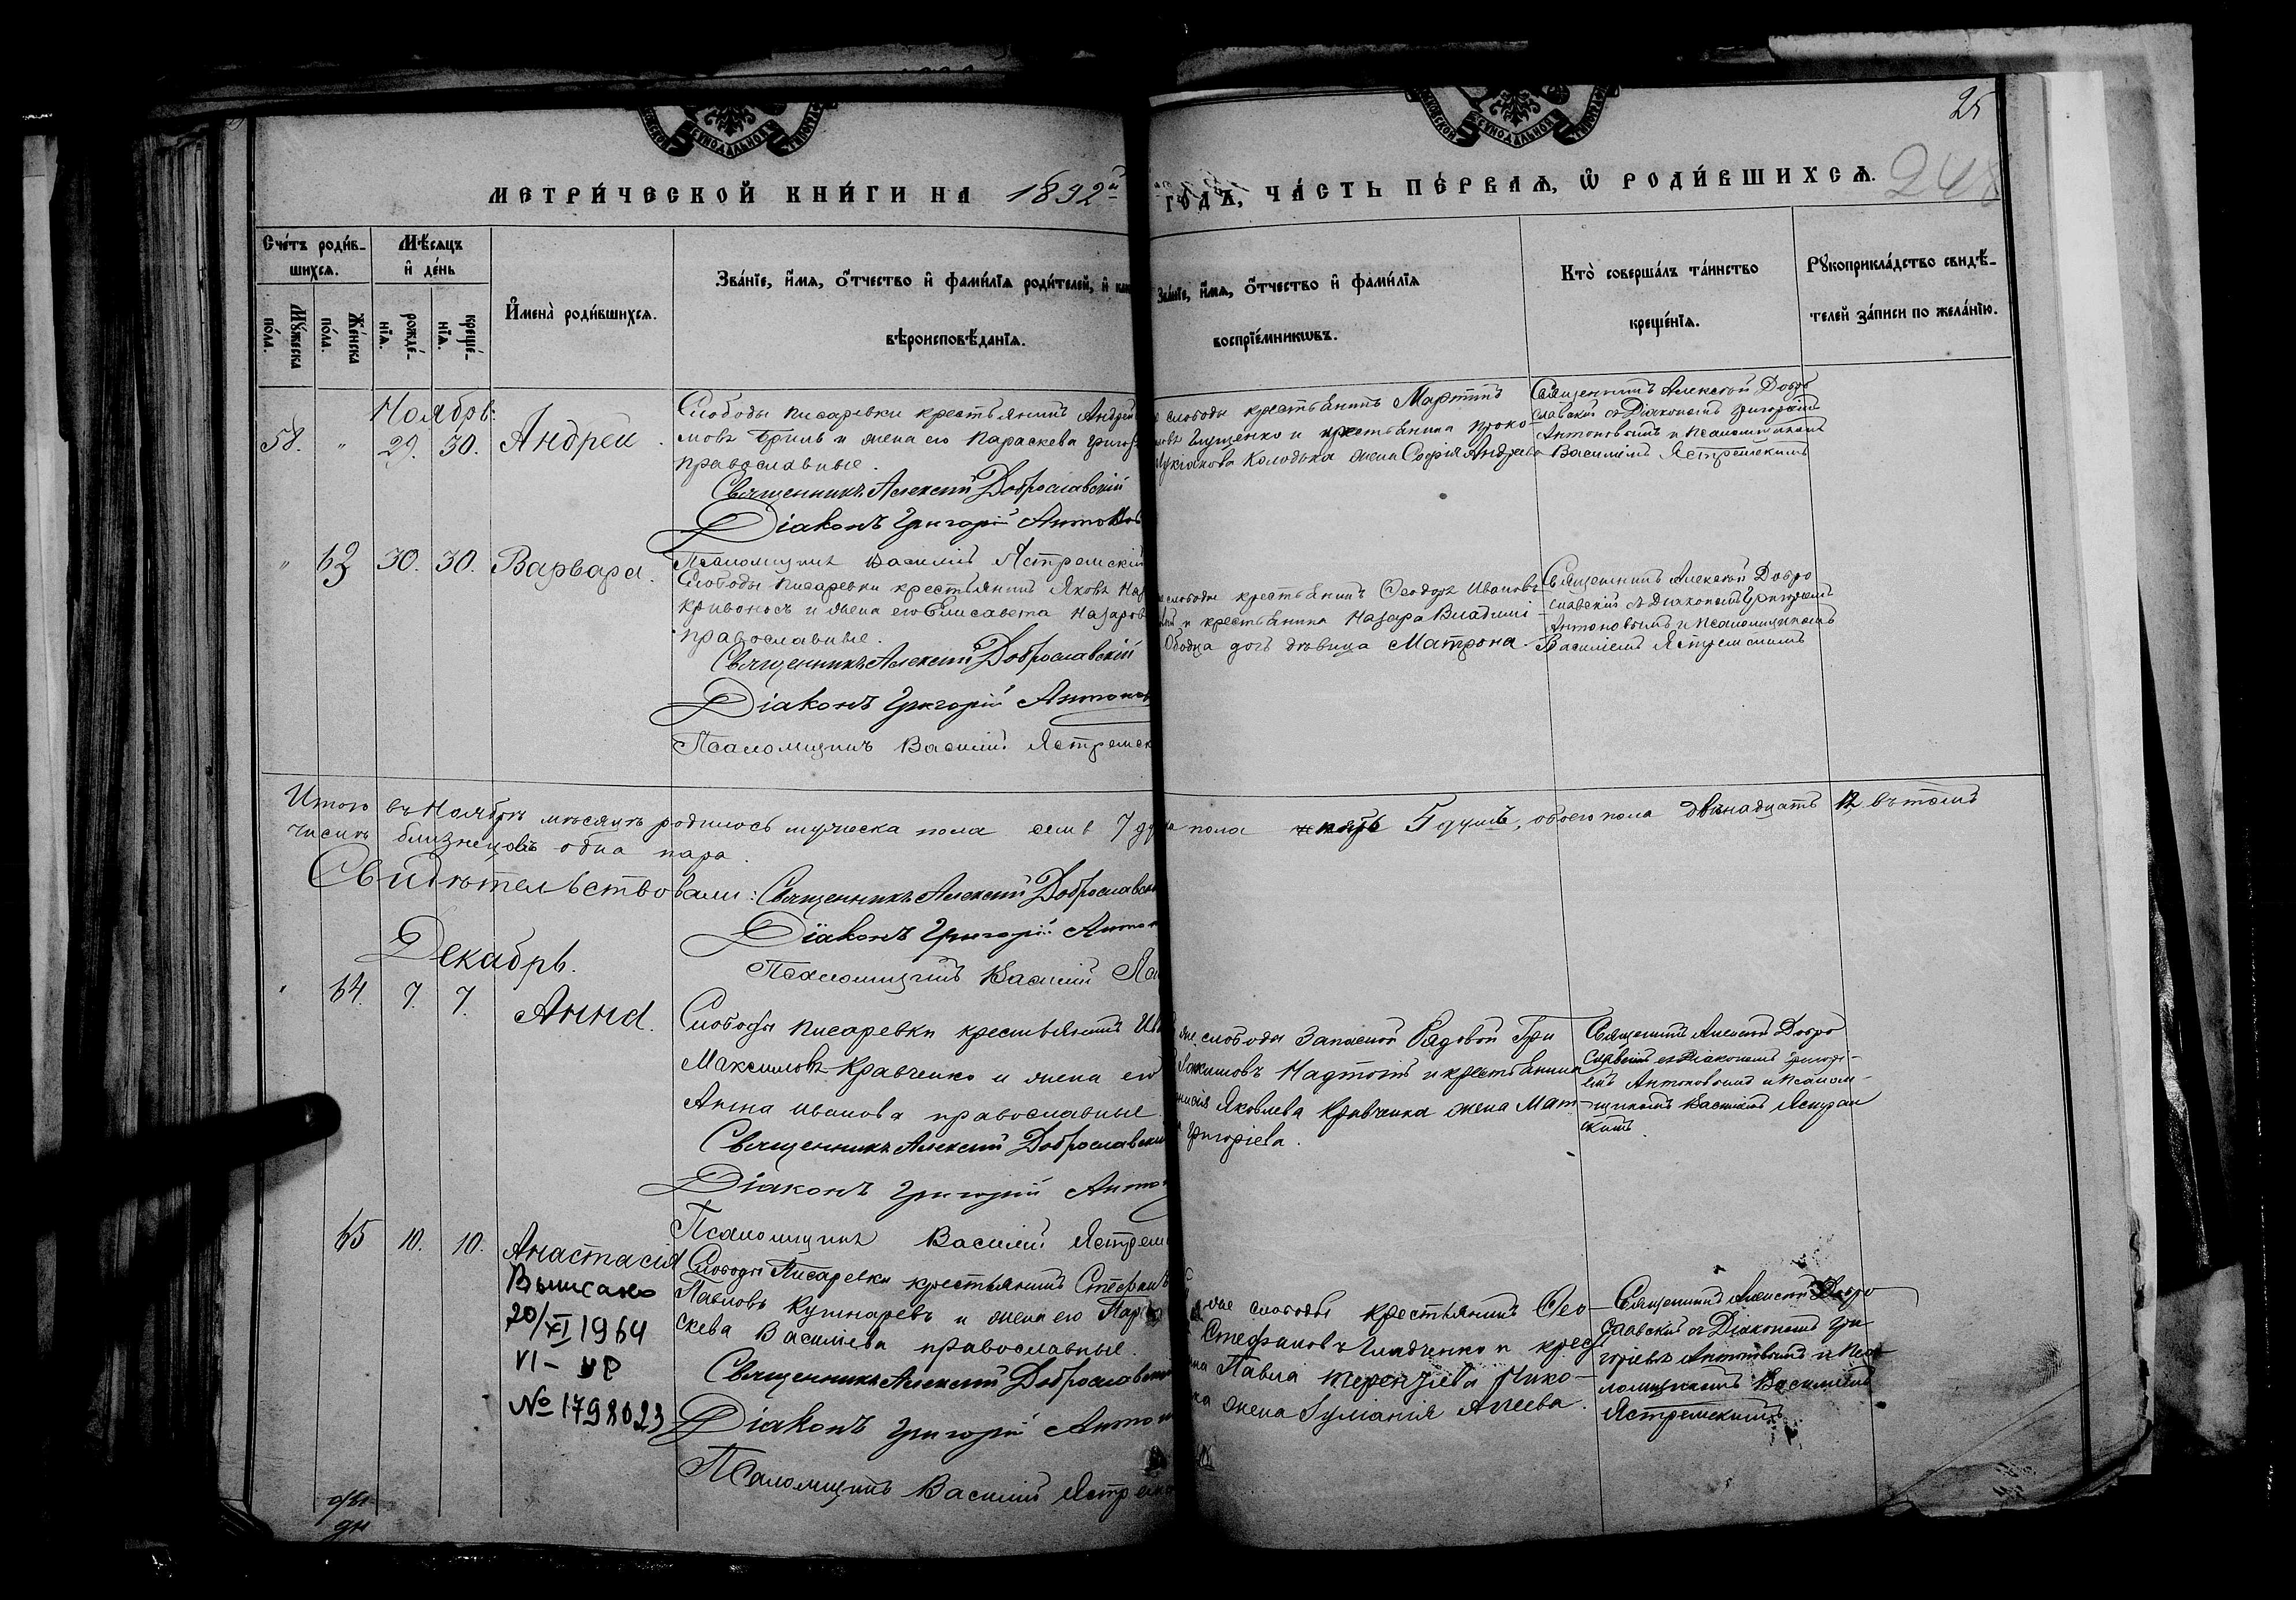 МОСКОВСКОЙ СѴНОДАЛЬНОЙ ТИПОГРАФ
МОСКОВСКОЙ СѴНОДАЛЬНОЙ ТИПОГРАФ
25
248
МЕТРИ́ЧЕСКОЙ КНИ́ГИ НА 1892й
ГОДЪ, ЧА́СТЬ ПЕ́РВАѦ, Ѡ РОДИ́ВШИХСѦ.
Сче́тъ роди́в-
шихсѧ.
Мꙋ́жеска
по́ла.
Же́нска
по́ла.
Мѣ́сѧцъ
и҆ де́нь
рожде́-
нїѧ.
креще́-
нїѧ.
И҆мена̀ роди́вшихсѧ.
Зва́нїе, и҆́мѧ, ѻ҆́тчество и҆ фами́лїѧ роди́телей, и҆ как
вѣроисповѣ́данїѧ.
Зва́нїе, и҆́мѧ, ѻ҆́тчество и҆ фами́лїѧ
воспрїе́мникѡвъ.
Кто̀ соверша́лъ та́инство
креще́нїѧ.
Рꙋкоприкла́дство свидѣ́-
телей за́писи по жела́нїю.
Ноябрь.
58. " 29. 30. Андрей.
Слободы Писаревки крестьянинъ Андрей
мовъ Бриль и жена его Параскева Григор
православные.
Священникъ Алексий Доброславскій
Діаконъ Григорій Антонов
Псаломщикъ Василій Ястремскій
слободы крестьянинъ Мартинъ
Глущенко и крестьянина Проко-
Лукіанова Колодька жена Софія Андреева
Священникъ Алексей Добро
славский съ Діакономъ Григоріемъ
Антоновымъ и Псаломщикомъ
Василіемъ Ястремскимъ
" 63 30. 30. Варвара.
Слободы Писаревки крестьянинъ Яковъ Наз
Кривоносъ и жена его Елисавета Назаров
православные.
Священникъ Алексий Доброславскій
Діаконъ Григорій Антонов
Псаломщикъ Василій Ястремск
слободы крестьянинъ Ѳеодоръ Ивановъ
и крестьянина Назара Владимі
Ободца дочь дѣвица Матрона.
Священникъ Алексей Добро
славский съ Діакономъ Григоріемъ
Антоновымъ и Псаломщикомъ
Василіемъ Ястремскимъ
Итого въ Ноябрѣ мѣсяцѣ родилось мужеска пола семь 7 ду
пола пять 5 душъ, обоего пола двѣнадцать 12, въ томъ
числѣ близнецовъ одна пара.
Свидѣтельствовали: Священникъ Алексий Доброславск
Діаконъ Григорій Антон
Псаломщикъ Василій Яс
Декабрь.
64. 7. 7. Анна.
Слободы Писаревки крестьянинъ Ив
Максимовъ Кравченко и жена его
Анна Иванова православные.
Священникъ Алексий Доброславский
Діаконъ Григорій Антон
Псаломщикъ Василій Ястрем
слободы Запасной Рядовой Гри
и крестьянина
Яковлева Кравченка жена Мат-
Григоріева.
Священникъ Алексей Добро
славский съ Діакономъ Григорі-
емъ Антоновымъ и Псалом-
щикомъ Василіемъ Ястрем
скимъ.
65 10. 10. Анастасія
Выписано
20/XI 1964
VI-
№ 1798023
Слободы Писаревки крестьянинъ Стефанъ
Павловъ Кушнаревъ и жена его Пара
скева Василіева православные.
Священникъ Алексий Доброславский
Діаконъ Григорій Антон
Псаломщикъ Василій Ястремс
слободы крестьянинъ Ѳео-
Стефановъ Гладченко и крес
Павла Терентіева Нико-
жена Іуліанія
Священникъ Алексей Добро
славский съ Діакономъ Гри
горіемъ Антоновымъ и Пса-
ломщикомъ Василіемъ
Ястремскимъ